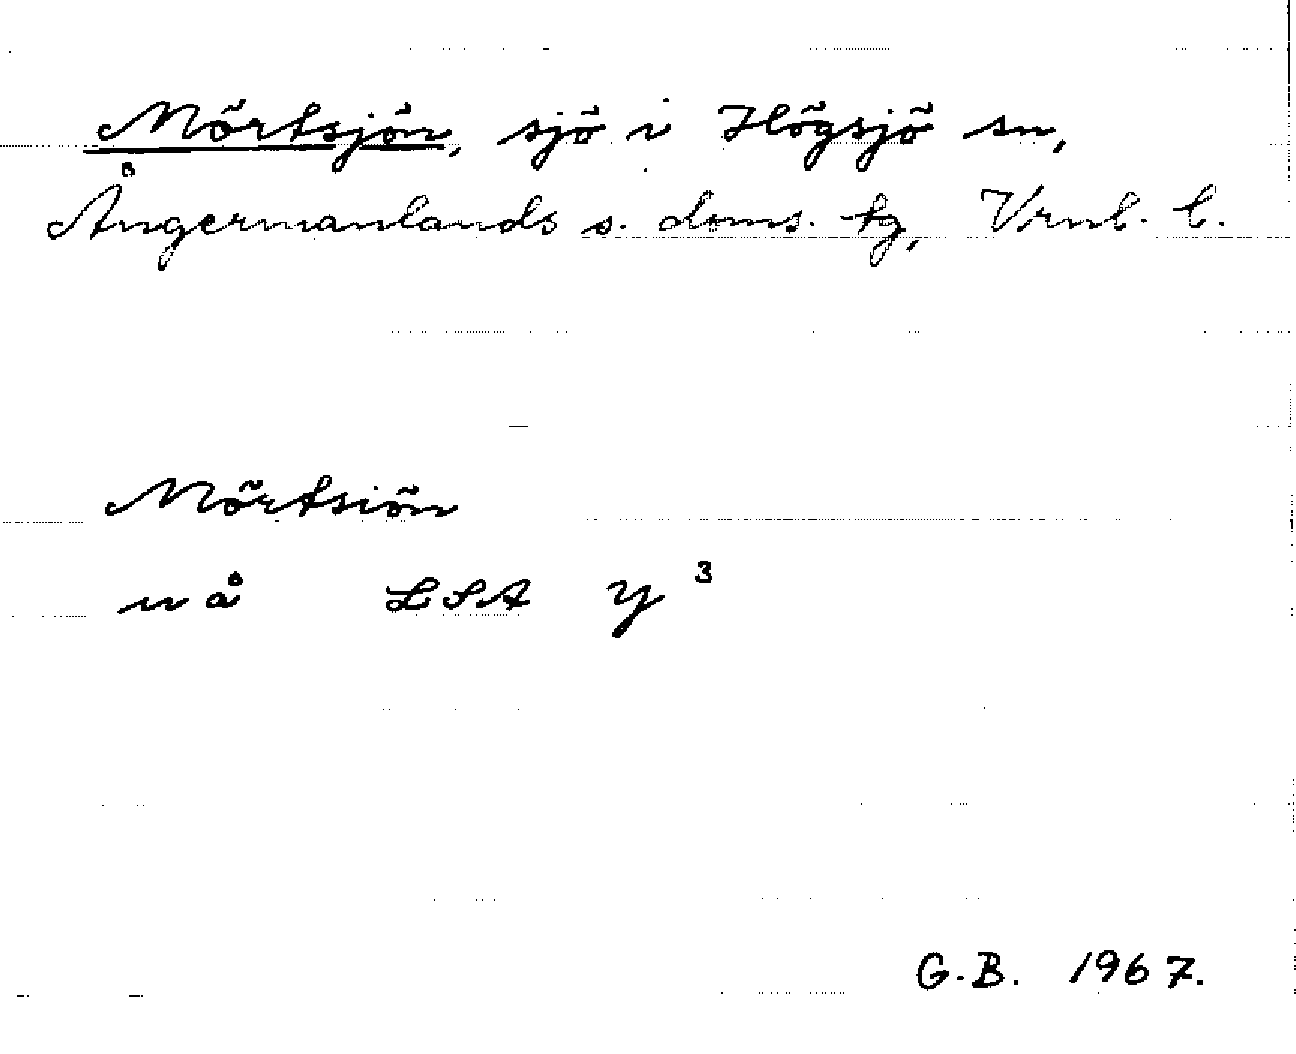 Mörtsjön, sjö i Högsjö sn,
Ångermanlands s. doms. tg, Vrnl. l.
Mörtsiön
nå LSA Y 3
G.B. 1967.